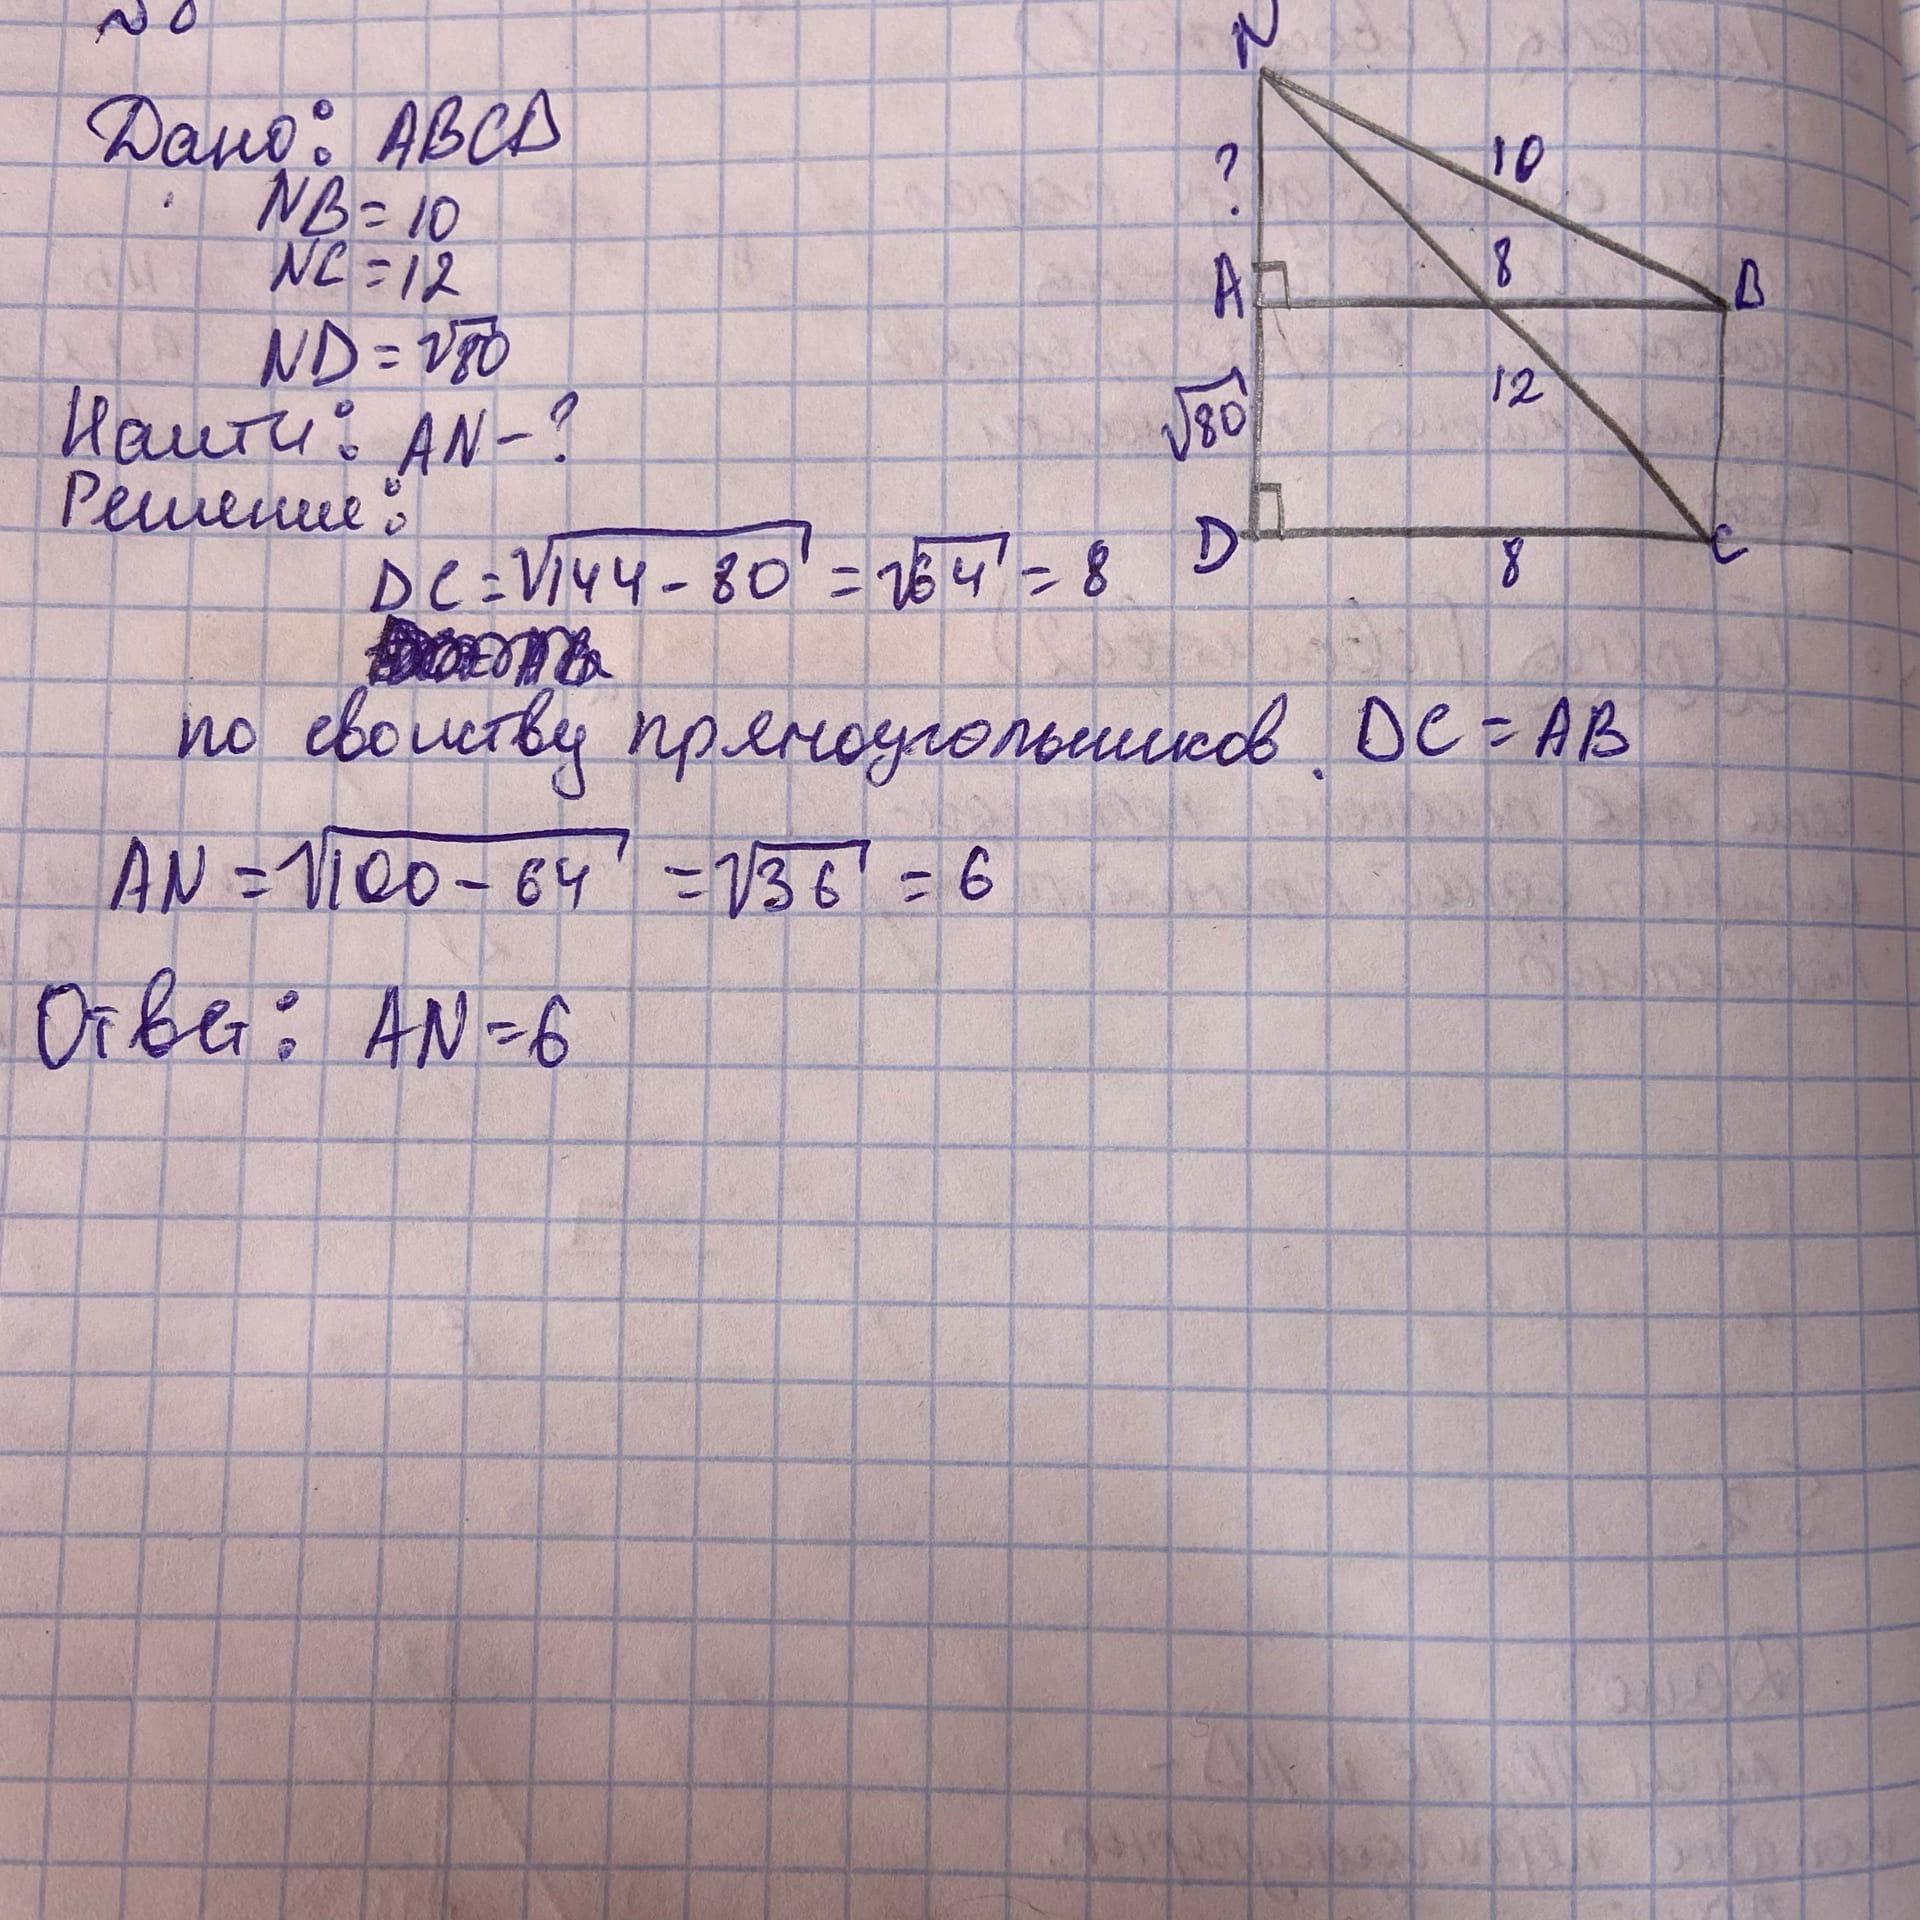 Дано: ABCD
NB = 10
NC = 12
ND = √80
Найти: AN - ?
Решение:
DC = √144 - 80 = √64 = 8
по свойству прямоугольников. DC = AB
AN = √100 - 64 = √36 = 6
Ответ: AN = 6
N
?
10
A
8
B
√80
12
D
8
C